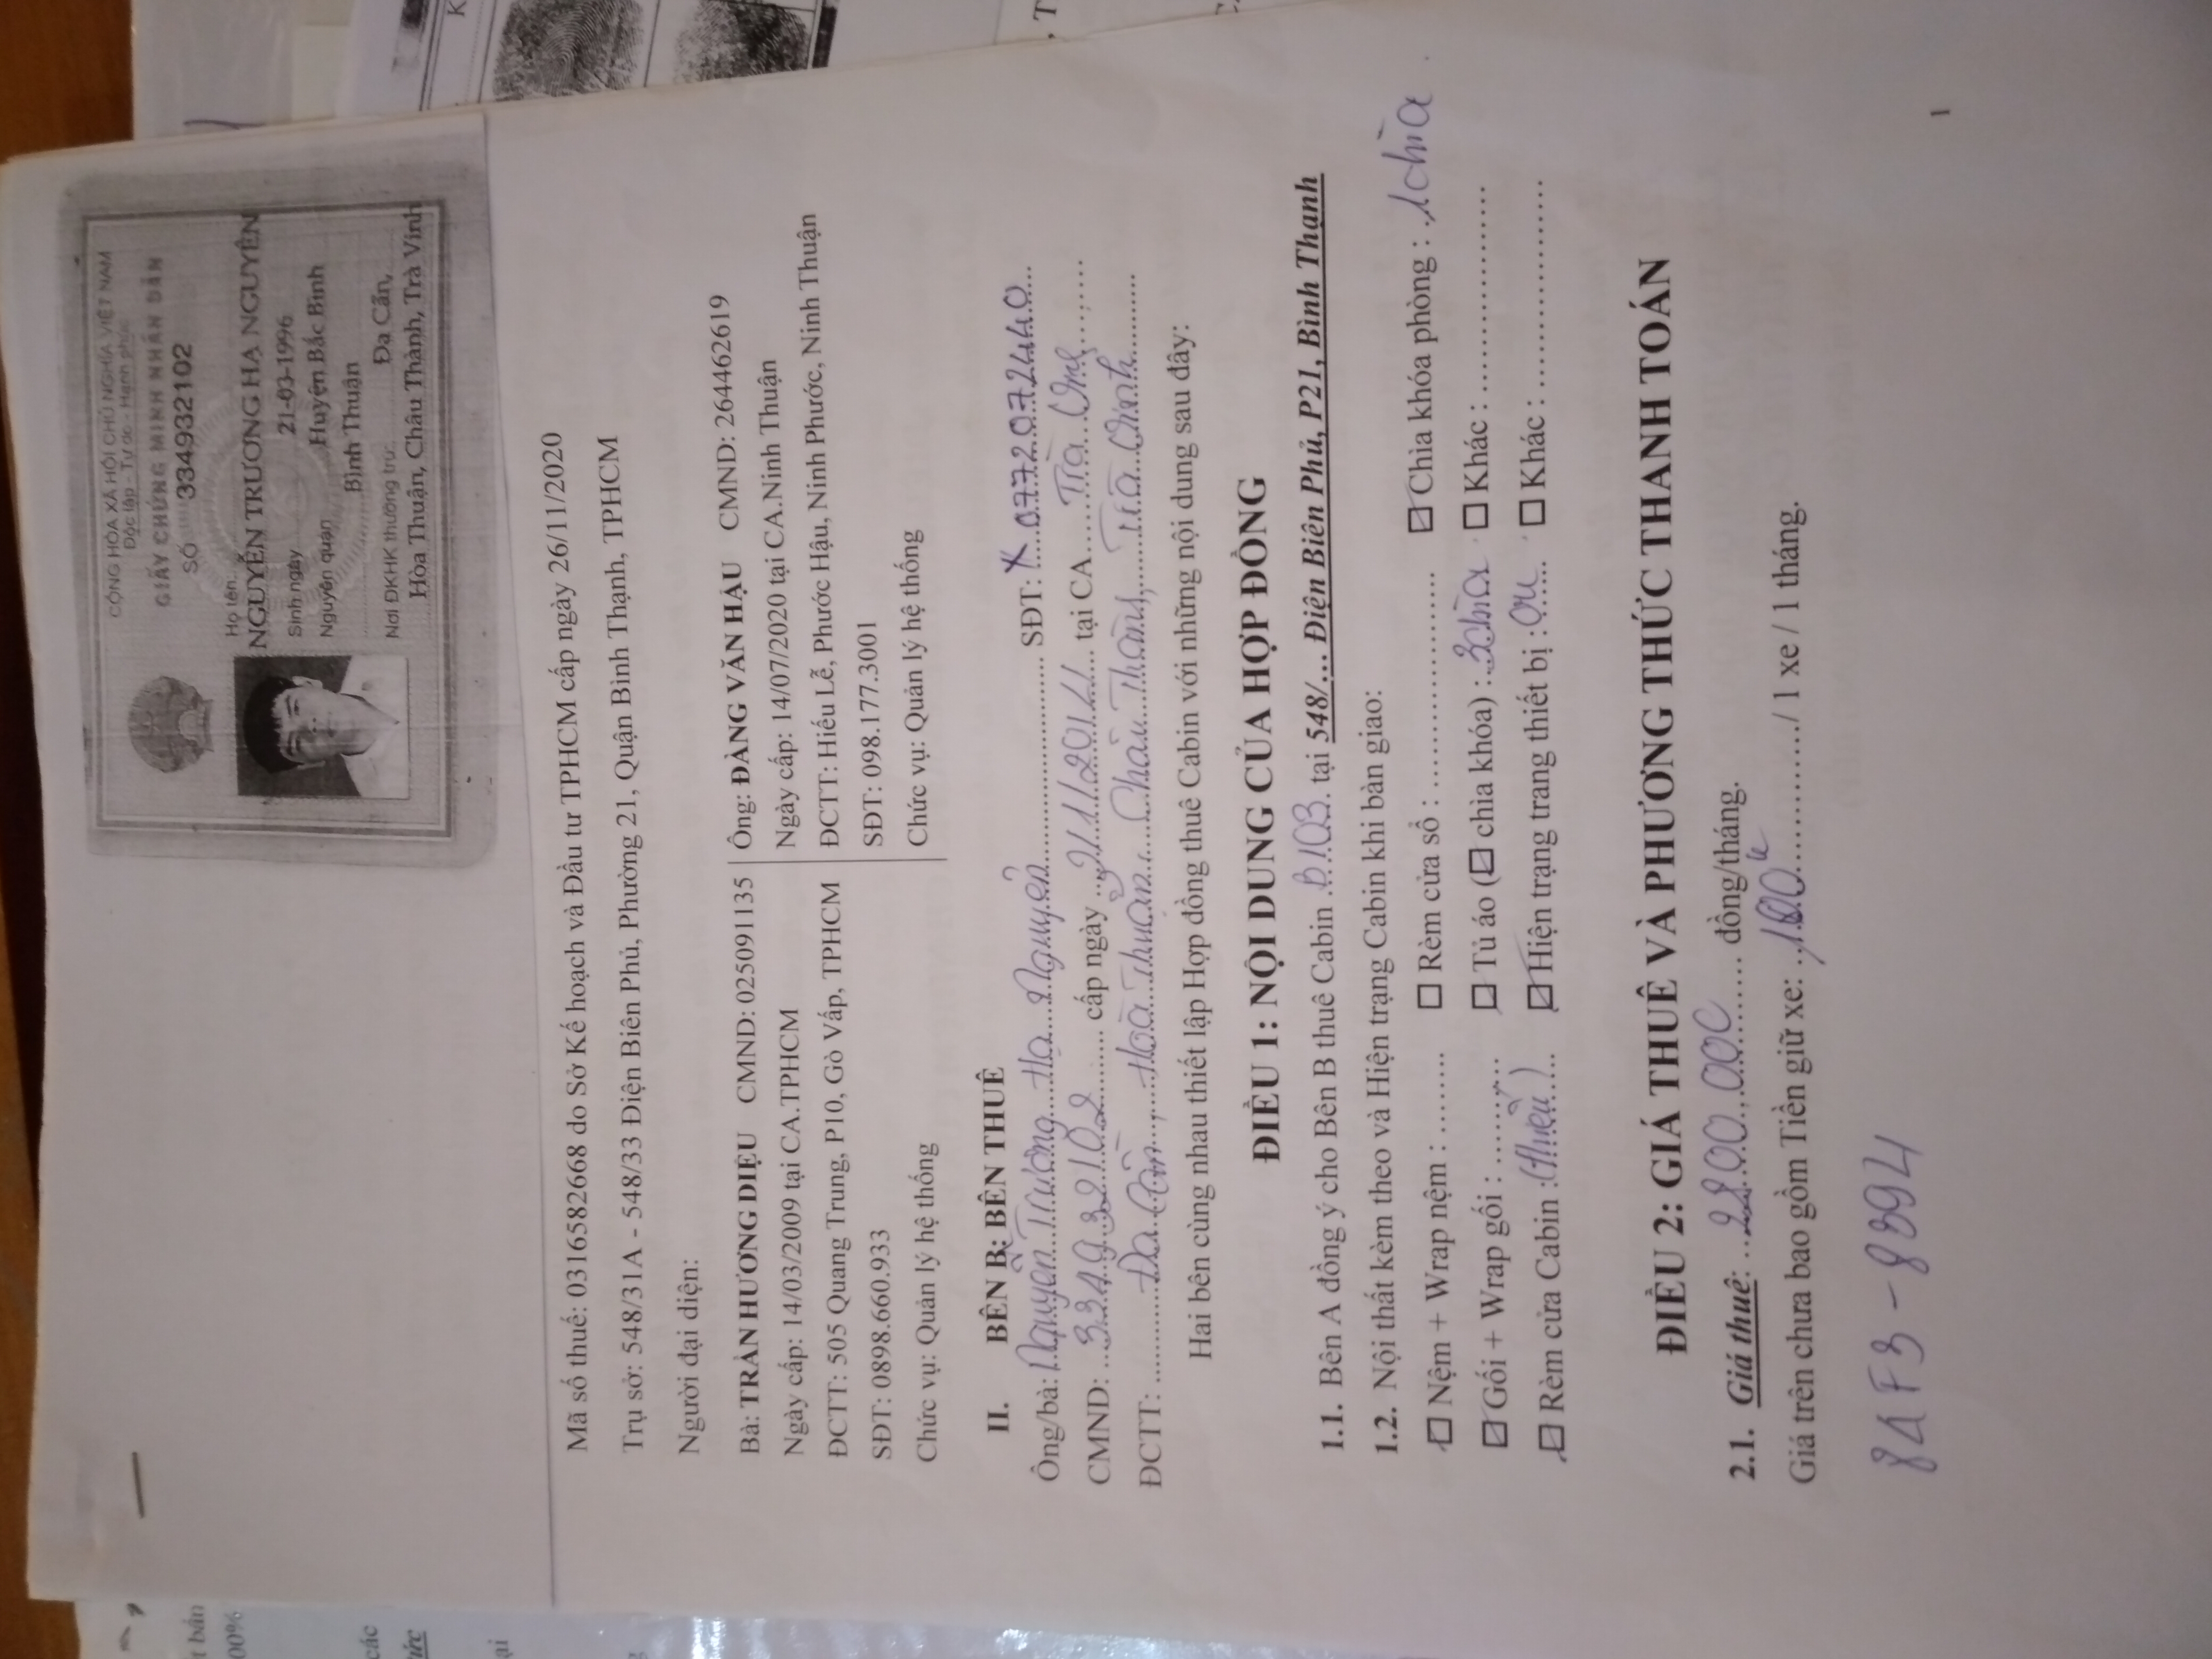 CỘNG HÒA XÃ HỘI CHỦ NGHĨA VIỆT NAM
Độc lập - Tự do - Hạnh phúc
GIẤY CHỨNG MINH NHÂN DÂN
SỐ 334932102
Họ tên:
NGUYỄN TRƯƠNG HẠ NGUYÊN
Sinh ngày 21-03-1996
Nguyên quán Huyện Bắc Bình
Bình Thuận
Nơi ĐKHK thường trú: Đa Cần,
Hòa Thuận, Châu Thành, Trà Vinh
Mã số thuế: 0316582668 do Sở Kế hoạch và Đầu tư TPHCM cấp ngày 26/11/2020
Trụ sở: 548/31A - 548/33 Điện Biên Phủ, Phường 21, Quận Bình Thạnh, TPHCM
Người đại diện:
Bà: TRẦN HƯƠNG DIỆU CMND: 025091135
Ngày cấp: 14/03/2009 tại CA.TPHCM
ĐCTT: 505 Quang Trung, P10, Gò Vấp, TPHCM
SĐT: 0898.660.933
Chức vụ: Quản lý hệ thống
Ông: ĐÀNG VĂN HẬU CMND: 264462619
Ngày cấp: 14/07/2020 tại CA.Ninh Thuận
ĐCTTT: Hiếu Lễ, Phước Hậu, Ninh Phước, Ninh Thuận
SĐT: 098.177.3001
Chức vụ: Quản lý hệ thống
II. BÊN B: BÊN THUÊ
Ông/bà: Nguyễn Trương Hạ Nguyên SĐT: 0772072440
CMND: 334932102 cấp ngày tại CA Trà Vinh
ĐCTT: Đa Cần, Hoà Thuận, Châu Thành, Trà Vinh
Hai bên cùng nhau thiết lập Hợp đồng thuê Cabin với những nội dung sau đây:
ĐIỀU 1: NỘI DUNG CỦA HỢP ĐỒNG
1.1. Bên A đồng ý cho Bên B thuê Cabin B103 tại 548/... Điện Biên Phủ, P21, Bình Thạnh
1.2. Nội thất kèm theo và Hiện trạng Cabin khi bàn giao:
☐ Nệm + Wrap nệm : ........ ☐ Rèm cửa sổ : .................... ☑ Chìa khóa phòng : 1 chìa
☑ Gối + Wrap gối : ........ ☐ Tủ áo (☑ chìa khóa) : 3 chìa ☐ Khác : ....................
☐ Rèm cửa Cabin : (thiếu) ☑ Hiện trạng trang thiết bị : ☐ Khác : ....................
ĐIỀU 2: GIÁ THUÊ VÀ PHƯƠNG THỨC THANH TOÁN
2.1. Giá thuê: 2800.000 đồng/tháng.
Giá trên chưa bao gồm Tiền giữ xe: / 1 xe / 1 tháng.
84F3 - 8394
1